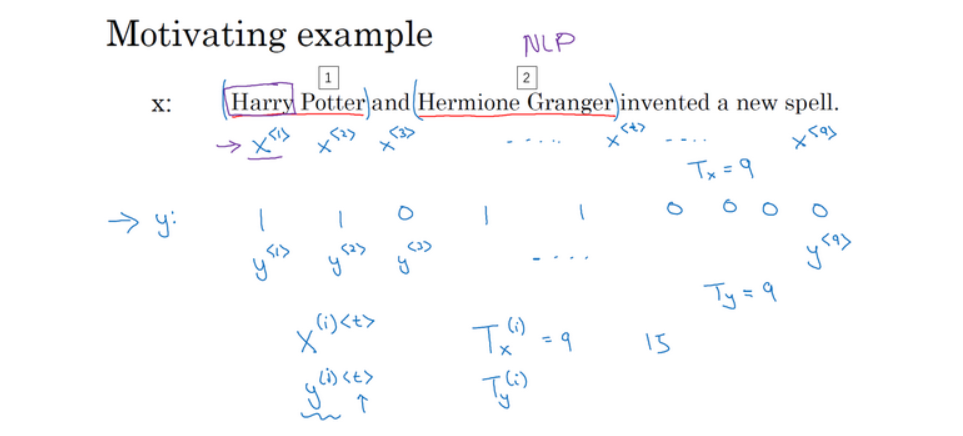 Motivating example
NLP
1 2
x: Harry Potter and Hermione Granger invented a new spell.
→ x<1> x<2> x<3> ..... x<t> .... x<9>
Tx = 9
→ y: 1 1 0 1 1 0 0 0 0
y<1> y<2> y<3> ..... y<9>
Ty = 9
X(i)<t> Tx(i) = 9 15
y(i)<t> Ty(i)
↑